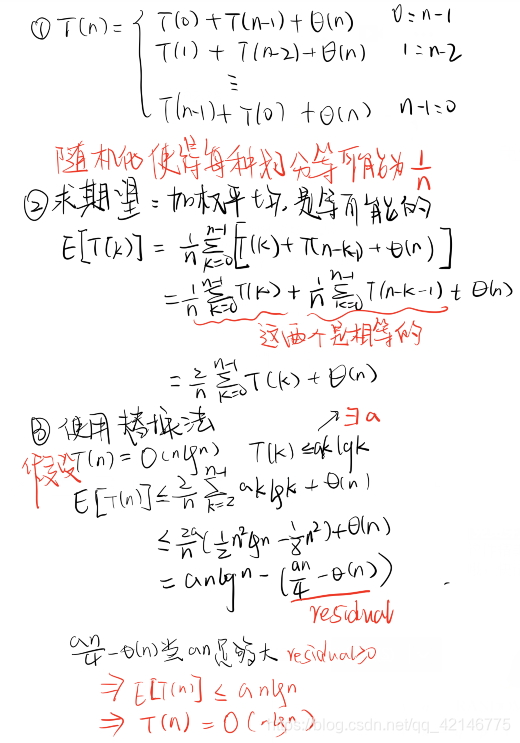 ① T(n) = { T(0) + T(n-1) + Θ(n) 0 = n-1
T(1) + T(n-2) + Θ(n) 1 = n-2
⋮
T(n-1) + T(0) + Θ(n) n-1 = 0
随机化使得每种划分等可能为 1/n
② 求期望 = 加权平均, 是等可能的
E[T(k)] = 1/n ∑_{k=0}^{n-1} [T(k) + T(n-k-1) + Θ(n)]
= 1/n ∑_{k=0}^{n-1} T(k) + 1/n ∑_{k=0}^{n-1} T(n-k-1) + Θ(n)
这两个是相等的
= 2/n ∑_{k=0}^{n-1} T(k) + Θ(n)
③ 使用替换法
∃a
假设 T(n) = O(nlgn) T(k) ≤ aklgk
E[T(n)] ≤ 2/n ∑_{k=2}^{n-1} aklgk + Θ(n)
≤ 2a/n (1/2 n²lgn - 1/8 n²) + Θ(n)
= anlgn - (an/4 - Θ(n))
residual
an/4 - Θ(n) 当an足够大 residual≥0
⇒ E[T(n)] ≤ anlgn
⇒ T(n) = O(nlgn)
https://blog.csdn.net/qq_42146775